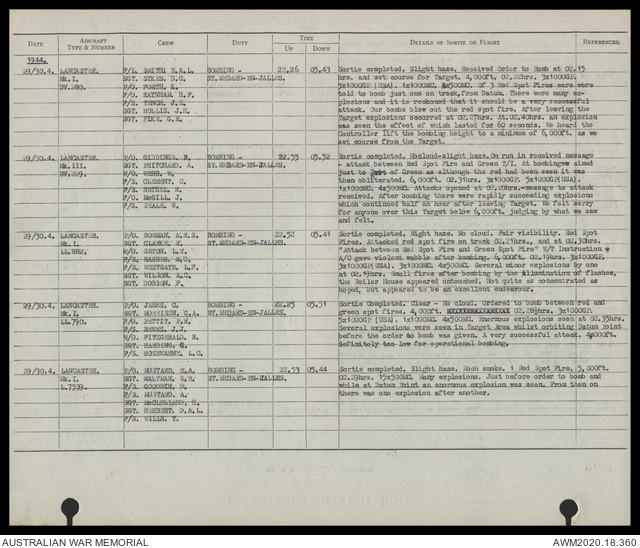 DATE AIRCRAFT TYPE & NUMBER CREW DUTY TIME UP DOWN DETAILS OF SORTIE OR FLIGHT REFERENCES.
1944.
29/30.4. LANCASTER. F/L. SMITH, E.A.L. BOMBING - 22.26 05.43 Sortie completed. Slight haze. Received Order to Bomb at 02.15
Mk.I. SGT. SYKES, D.C. ST.MEDARD-EN-JALLES. hrs. and set course for Target. 4,000ft. 02.22hrs. 3x1000GP.
DV.280. P/O. NORTH, R. 5x1000GP (USA). 1x1000MC. 4x500MC. Of 3 Red Spot Fires were were
F/O. RAYNHAM, H.F. told to bomb just one on track, from Datum. There were many ex-
F/S. TENCH, J.E. plosions and it is reckoned that it should be a very successful
SGT. HOLLIS, J.H. attack. Our bombs blew out the red spot fire. After leaving the
SGT. FINK, G.R. Target explosions occurred at 02.27hrs. At 02.40hrs. an explosion
was seen the effect of which lasted for 60 seconds. We heard the
Controller lift the bombing height to a minimum of 6,000ft. as we
set course from the Target.
29/30.4. LANCASTER. P/O. GIDDINGS, B. BOMBING - 22.55 05.52 Sortie completed. Nocloud-slight haze. On run in received message
Mk.III. SGT. PRITCHARD, A. ST.MEDARD-EN-JALLES. - attack between Red Spot Fire and Green T/I. At bombingwe aimed
DV.229. W/O. WEBB, W. just to of Green as although the red had been seen it was
F/S. CLEMENT, C. then obliterated. 6,000ft. 02.31hrs. 3x1000GP. 5x1000GP(USA).
F/S. BETHEL, H. 1x1000MC. 4x500MC. Attacks opened at 02.20hrs-message to attack
F/O. McGILL, J. received. After bombing there were rapidly succeeding explosions
F/S. NEALE, W. which continued half an hour after leaving Target. We felt sorry
for anyone over this Target below 6,000ft. judging by what we saw
and felt.
29/30.4. LANCASTER. P/O. BOWMAN, A.R.S. BOMBING - 22.52 05.41 Sortie completed. Night haze. No cloud. Fair visibility. Red Spot
Mk.I. SGT. CLARKE, R. ST.MEDARD-EN-JALLES. Fires. Attacked red spot fire on track 02.21hrs., and at 02.30hrs.
LL.882. W/O. SETON, L.H. "Attack between Red Spot Fire and Green Spot Fire" W/T Instruction &
F/S. BARBER, M.C. A/C gave violent wabble after bombing. 6,000ft. 02.19hrs. 3x1000GP.
F/S. WESTGATE, L.F. 3x1000GP(USA). 3x1000MC. 4x500MC. Several minor explosions by one
SGT. WILSON, R.C. at 02.19hrs. Small fires after bombing by the illumination of flashes,
SGT. DOBSON, F. the Boiler House appeared untouched. Not quite as concentrated as
hoped, but appeared to be an excellent endeavour.
29/30.4. LANCASTER. P/O. JAMES, C. BOMBING - 22.25 05.51 Sortie Completed. Clear - No cloud. Ordered to bomb between red and
Mk.I. SGT. MORRISON, G.A. ST.MEDARD-EN-JALLES. green spot fires. 4,000ft. 02.28½hrs. 3x1000
LL.790. F/O. PETTIT, P.H. 5x1000GP (USA). 1x1000MC. 4x500MC. Enormous explosions seen at 02.35hrs.
F/S. J.J. Several explosions were seen in Target Area whilst orbiting Datum Point
W/O. FITZGERALD, B. before the order to bomb was given. A very successful attack. 4x000ft.
SGT. HARDING, E. definitely too low for operational bombing.
F/S. ROSENARNE, L.C.
29/30.4. LANCASTER. P/O. MUSTARD, E.A. BOMBING - 22.53 05.44 Sortie completed. Slight haze. Much smoke. 1 Red Spot Fire. 5,000ft.
Mk.I. SGT. WALTMAN, S.B. ST.MEDARD-EN-JALLES. 02.29hrs. 15x500MC. Many explosions. Just before order to bomb and
L.7539. F/S. GOODWIN, H. while at Datum Point an enormous explosion was seen. From then on
F/S. MUSTARD, A. there was one explosion after another.
SGT. McCLELLAND, H.
SGT. HERBERT, D.A.L.
F/S. WILLS, T.
AUSTRALIAN WAR MEMORIAL AWM2020.18.360